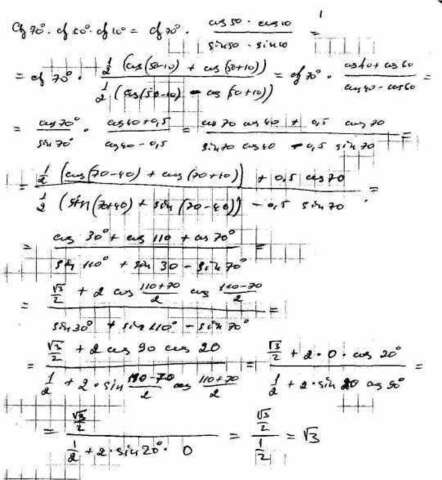 ctg 70° · ctg 50° · ctg 10° = ctg 70° · (cos 50 · cos 10)/(sin 50 · sin 10) =
= ctg 70° · (1/2 (cos(50-10) + cos(50+10)))/(1/2 (cos(50-10) - cos(50+10))) = ctg 70° · (cos 40 + cos 60)/(cos 40 - cos 60) =
= cos 70°/sin 70° · (cos 40 + 0,5)/(cos 40 - 0,5) = (cos 70 cos 40 + 0,5 cos 70)/(sin 70 cos 40 - 0,5 sin 70) =
= (1/2 (cos(70-40) + cos(70+40)) + 0,5 cos 70)/(1/2 (sin(70+40) + sin(70-40)) - 0,5 sin 70) =
= (cos 30° + cos 110 + cos 70°)/(sin 110° + sin 30 - sin 70°) =
= (√3/2 + 2 cos (110+70)/2 cos (110-70)/2)/(sin 30° + sin 110° - sin 70°) =
= (√3/2 + 2 cos 90 cos 20)/(1/2 + 2 · sin (110-70)/2 cos (110+70)/2) = (√3/2 + 2 · 0 · cos 20°)/(1/2 + 2 · sin 20 cos 90°)
= (√3/2)/(1/2 + 2 · sin 20° · 0) = (√3/2)/(1/2) = √3